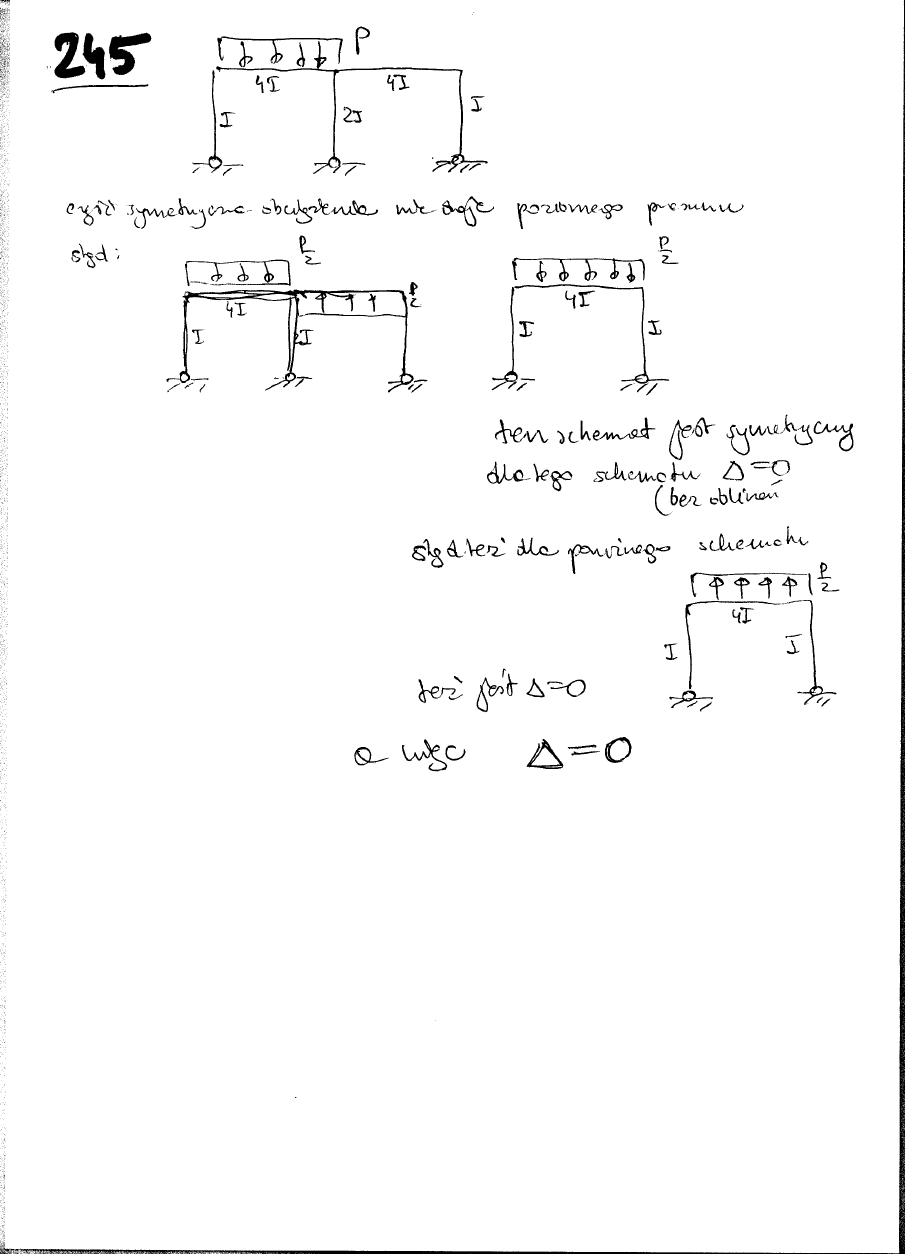 245
P
4I 4I
I 2I I
część symetryczna obciążenia nie daje poziomego przesuwu
stąd:
P/2 P/2 P/2
4I 4I
I 2I I I
ten schemat jest symetryczny
dla tego schematu Δ=0
(bez obliczeń
stąd też dla prawego schematu
P/2
4I
I I
też jest Δ=0
a więc Δ=0